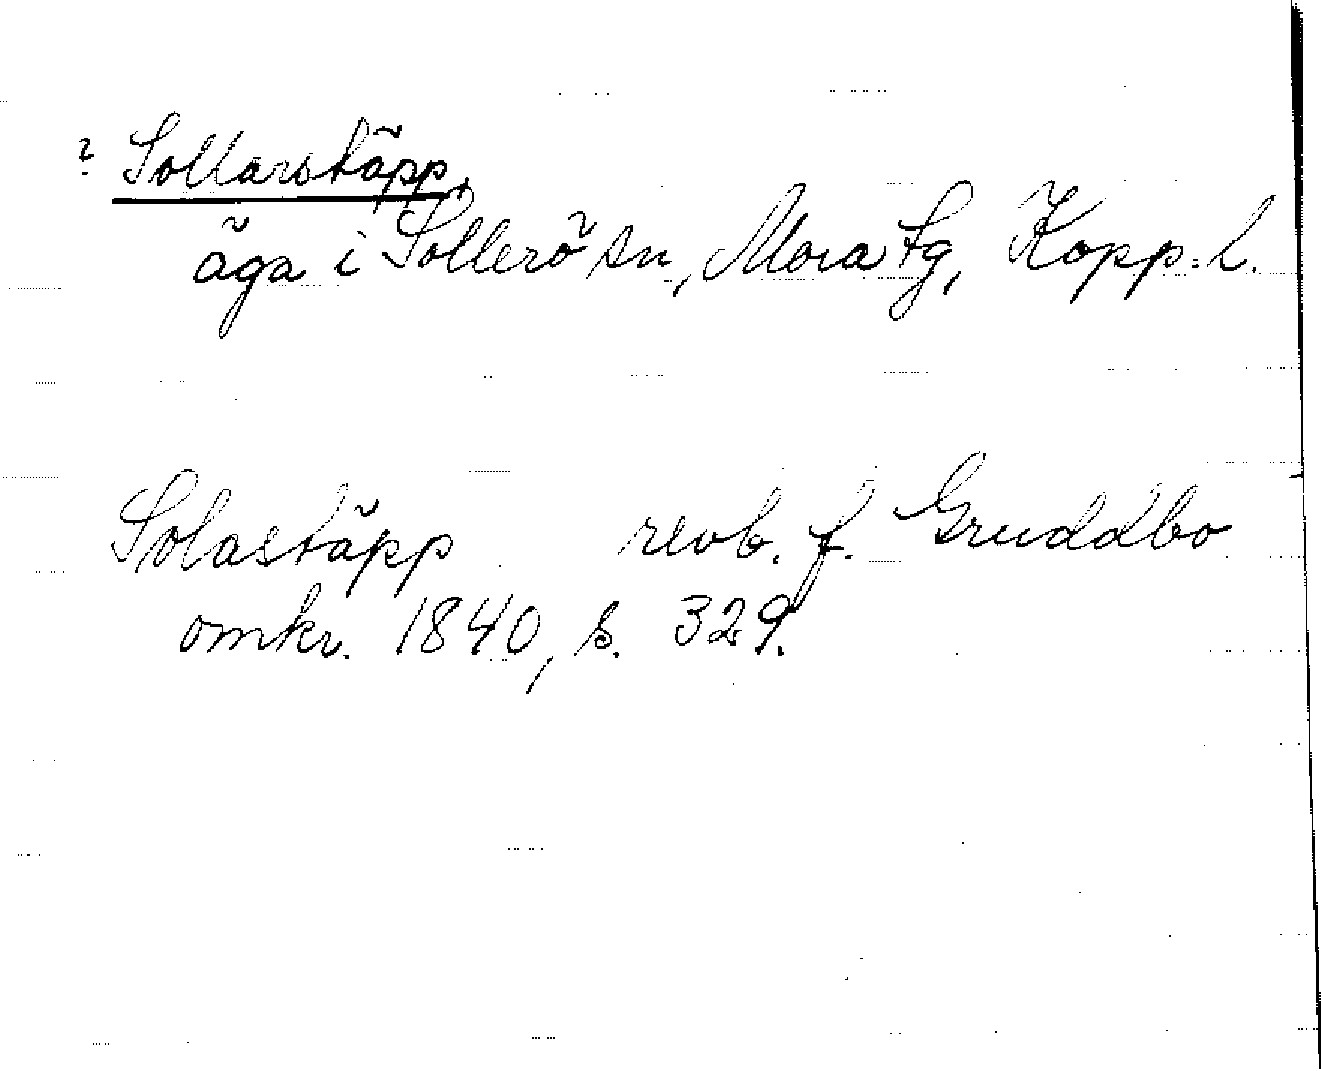 ? Sollarstäpp,
äga i Sollerö sn, Mora tg, Kopp. l.
Solastäpp revb. f. Gruddbo
omkr. 1840, s. 329.